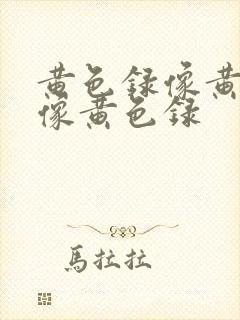 黄色録像黄
像黄色録
馬拉拉